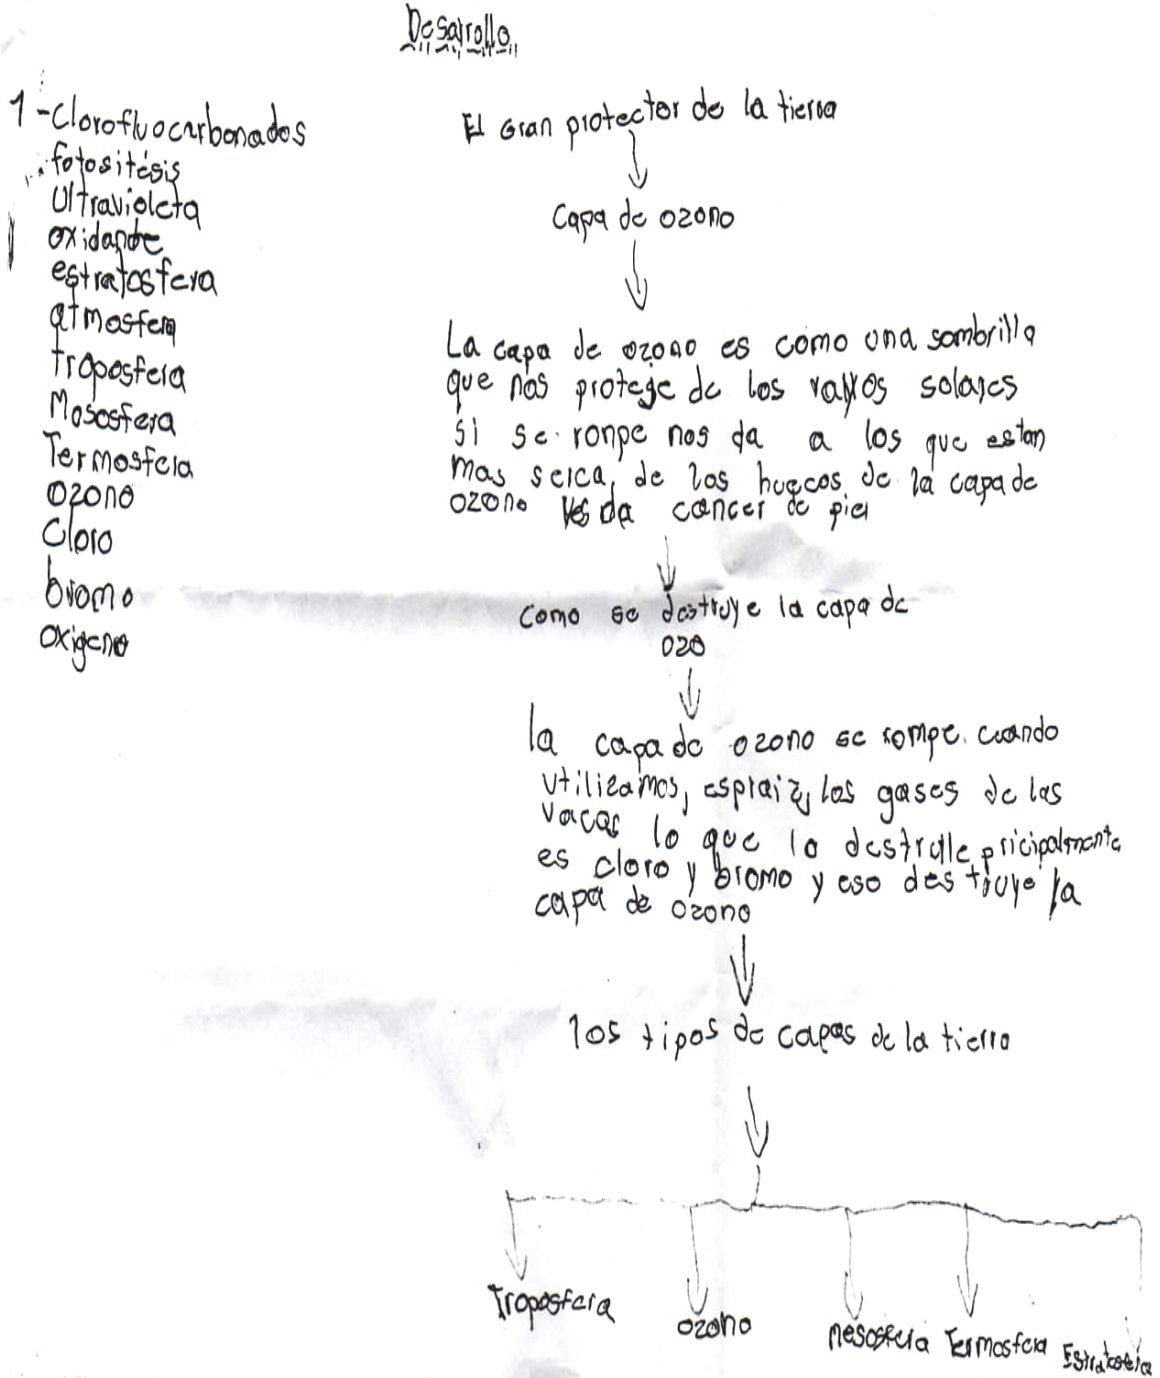 Desarrollo
1-Clorofluocarbonados
fotositésis
Ultravioleta
oxidande
estratosfera
atmosfera
troposfera
Mososfera
Termosfera
Ozono
Cloro
bromo
oxigeno
El Gran protector de la tierra
Capa de ozono
La capa de ozono es como una sombrilla
que nos proteje de los rayos solares
si se ronpe nos da a los que estan
mas serca, de los huecos de la capa de
ozono les da cancer de piel
como se destruye la capa de
ozo
la capa de ozono se rompe. cuando
utilizamos, espraiz, los gases de las
vacas lo que la destrulle pricipalmente
es cloro y bromo y eso destruye la
capa de ozono
los tipos de capas de la tierra
Troposfera
ozono
mesosfera
Termosfera
Estratosfera